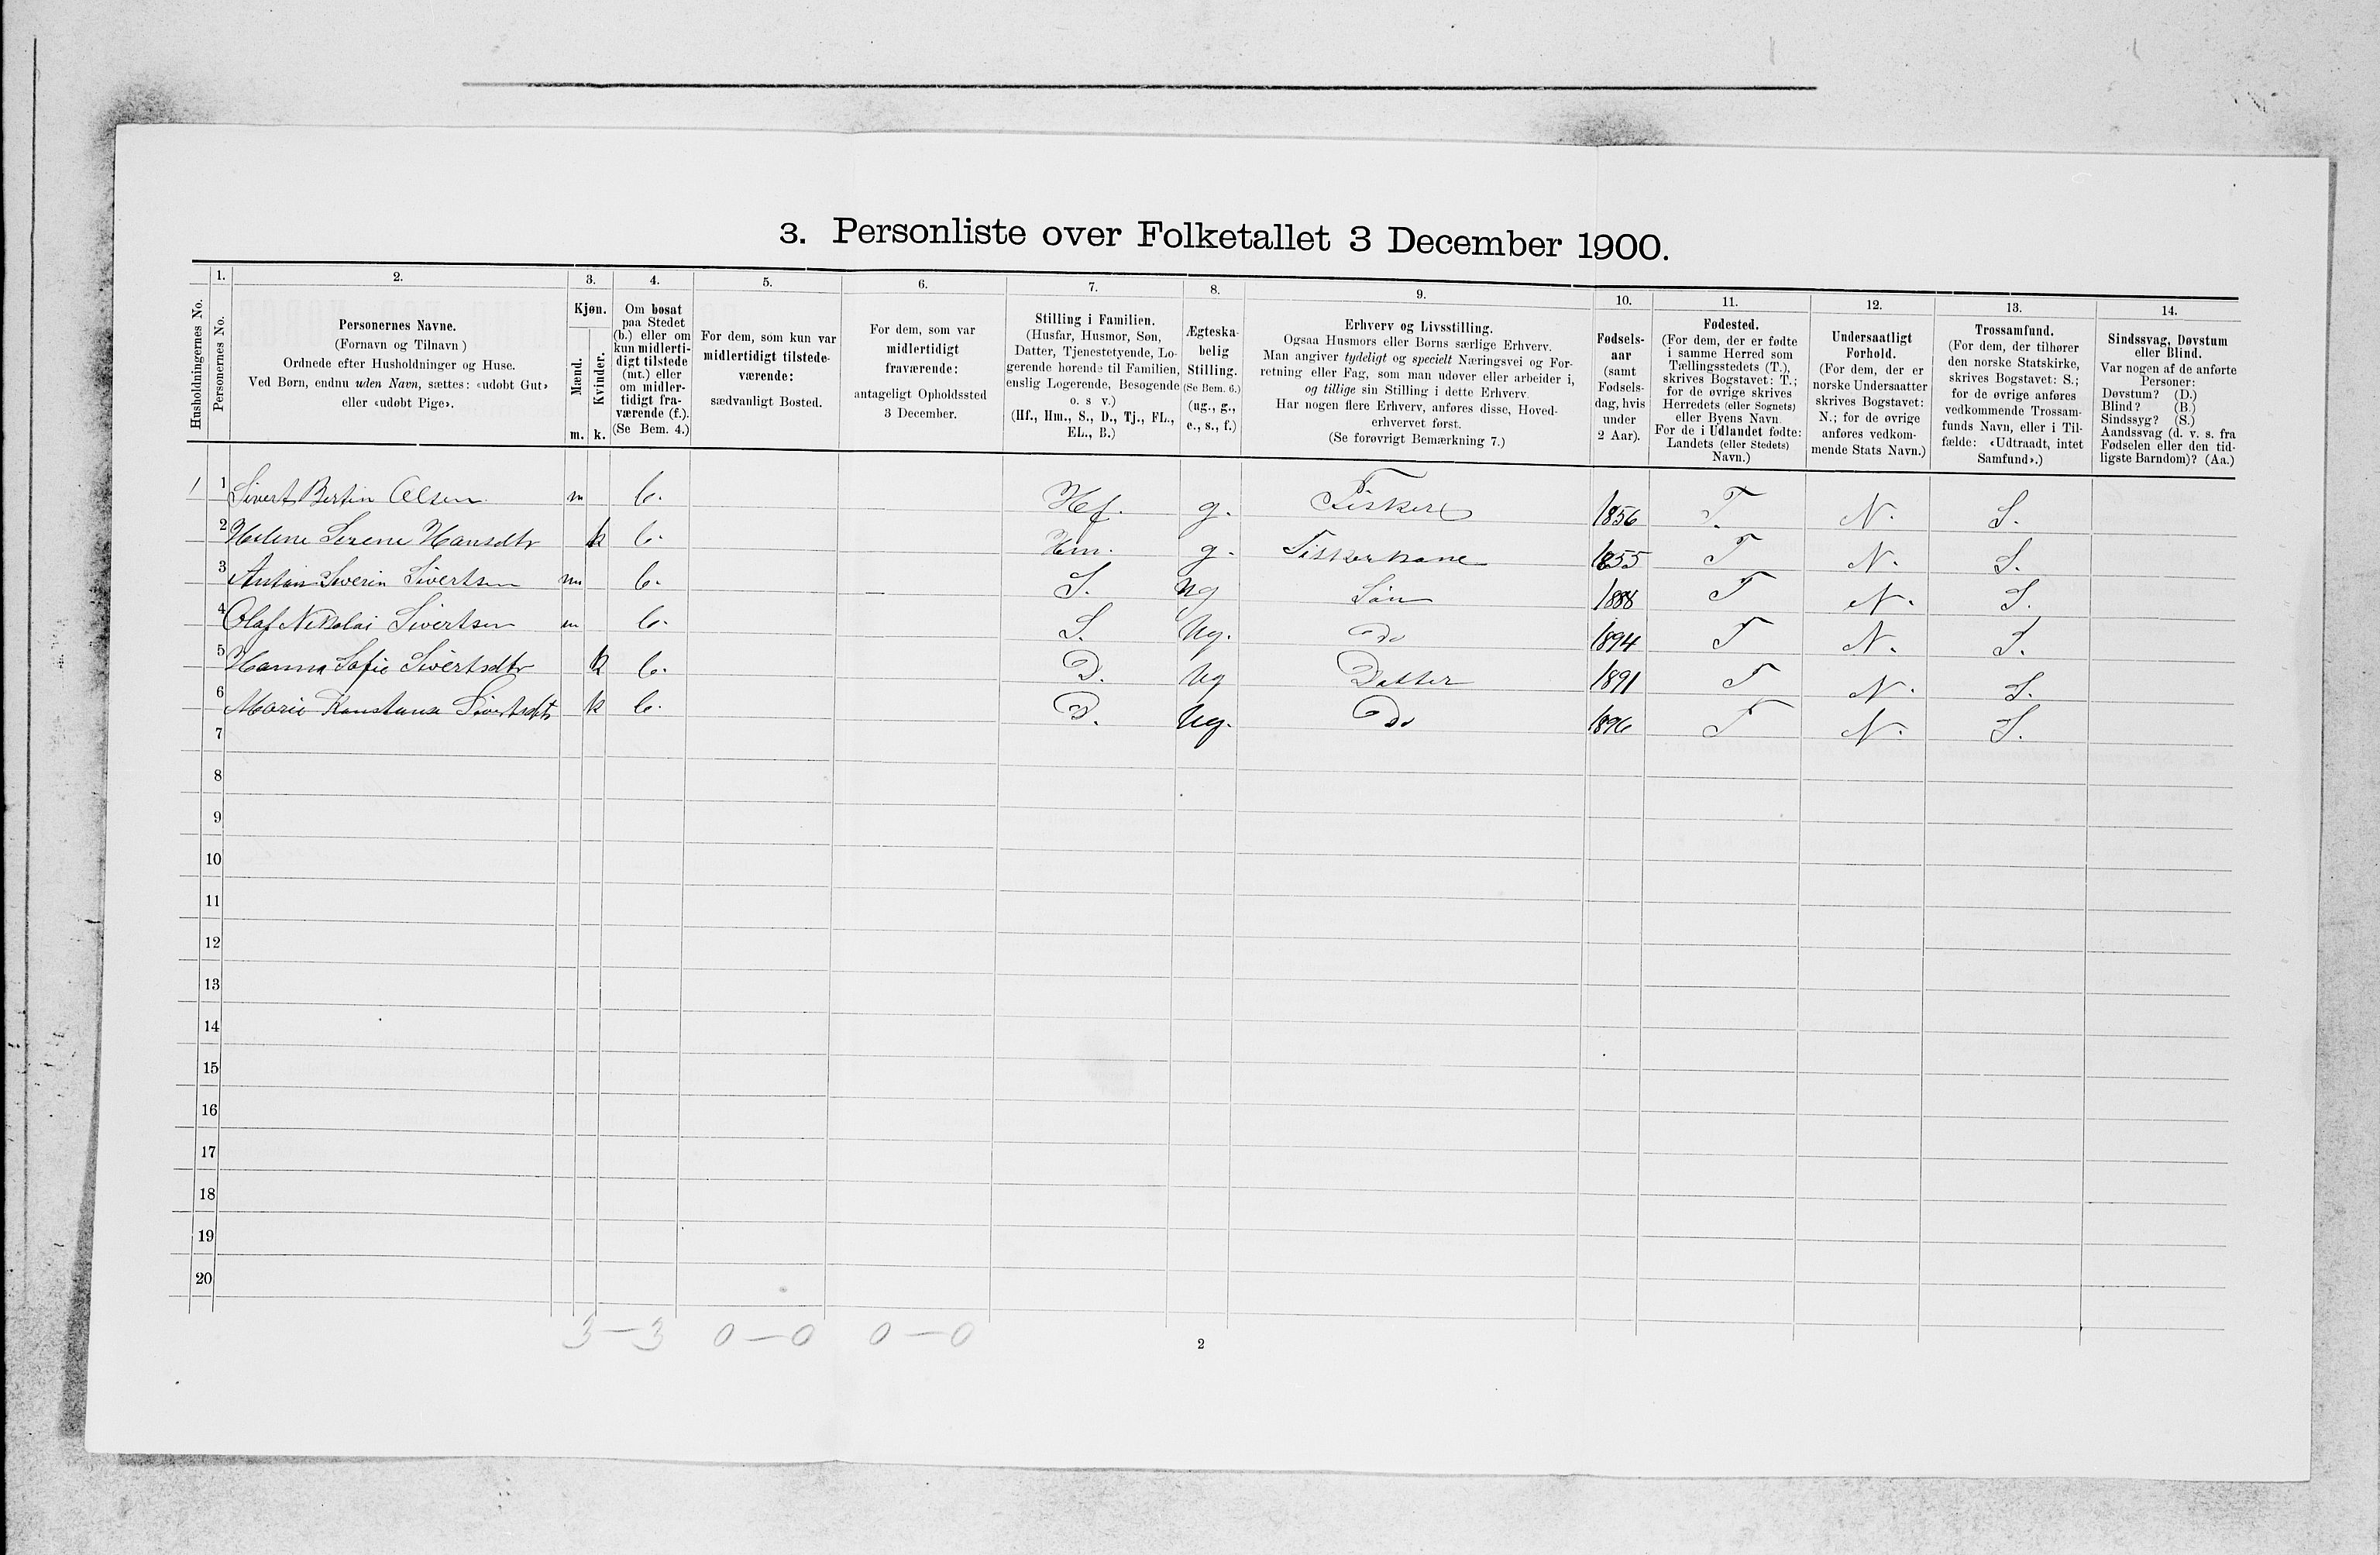 3. Personliste over Folketallet 3 December 1900.
Husholdningernes No.
1.
Personernes No.
2.
Personernes Navne.
(Fornavn og Tilnavn )
Ordnede efter Husholdninger og Huse.
Ved Børn, endnu uden Navn, sættes: «udøbt Gut»
eller «udøbt Pige».
3.
Kjøn.
Mænd.
Kvinder.
m. k.
4.
Om bosat
paa Stedet
(b.) eller om
kun midlerti-
digt tilstede
(mt.) eller
om midler-
tidigt fra-
værende (f.).
(Se Bem. 4.)
5.
For dem, som kun var
midlertidigt tilstede-
værende:
sædvanligt Bosted.
6.
For dem, som var
midlertidigt
fraværende:
antageligt Opholdssted
3 December.
7.
Stilling i Familien.
(Husfar, Husmor, Søn,
Datter, Tjenestetyende, Lo-
gerende hørende til Familien,
enslig Logerende, Besøgende
o. s v.)
(Hf., Hm., S., D., Tj., FL.,
EL., B.)
8.
Ægteska-
belig
Stilling.
(Se Bem. 6.)
(ug., g.,
e., s., f.)
9.
Erhverv og Livsstilling.
Ogsaa Husmors eller Børns særlige Erhverv.
Man angiver tydeligt og specielt Næringsvei og For-
retning eller Fag, som man udøver eller arbeider i,
og tillige sin Stilling i dette Erhverv.
Har nogen flere Erhverv, anføres disse, Hoved-
erhvervet først.
(Se forøvrigt Bemærkning 7.)
10.
Fødsels-
aar
(samt
Fødsels-
dag, hvis
under
2 Aar).
11.
Fødested.
(For dem, der er fødte
i samme Herred som
Tællingsstedets (T.),
skrives Bogstavet: T.;
for de øvrige skrives
Herredets (eller Sognets)
eller Byens Navn.
For de i Udlandet fødte:
Landets (eller Stedets)
Navn.)
12.
Undersaatligt
Forhold.
(For dem, der er
norske Undersaatter
skrives Bogstavet:
N.; for de øvrige
anføres vedkom-
mende Stats Navn.)
13.
Trossamfund.
(For dem, der tilhører
den norske Statskirke,
skrives Bogstavet: S.;
for de øvrige anføres
vedkommende Trossam-
funds Navn, eller i Til-
fælde: «Udtraadt, intet
Samfund».)
14.
Sindssvag, Døvstum
eller Blind.
Var nogen af de anførte
Personer:
Døvstum? (D.)
Blind? (B.)
Sindssyg? (S.)
Aandssvag (d. v. s. fra
Fødselen eller den tid-
ligste Barndom)? (Aa.)
1 1 Sivert Bertin Olsen m b. Hf. g. Fisker 1856 T. N. S.
2 Helene Serene Hansdtr k b. Hm. g. Fiskerkone 1855 T N. S.
3 Anton Severin Sivertsen m b. — S. ug Søn 1888 T N. S.
4 Olaf Nikolai Sivertsen m b. S. ug. Do 1894 T N. S.
5 Hanna Sofie Sivertsdtr k b. D. ug Datter 1891 T N. S.
6 Marie Konstanse Sivertsdtr k b. D. ug. Do 1896 T N. S.
7
8
9
10
11
12
13
14
15
16
17
18
19
20
3 — 3 0 — 0 0 — 0
2